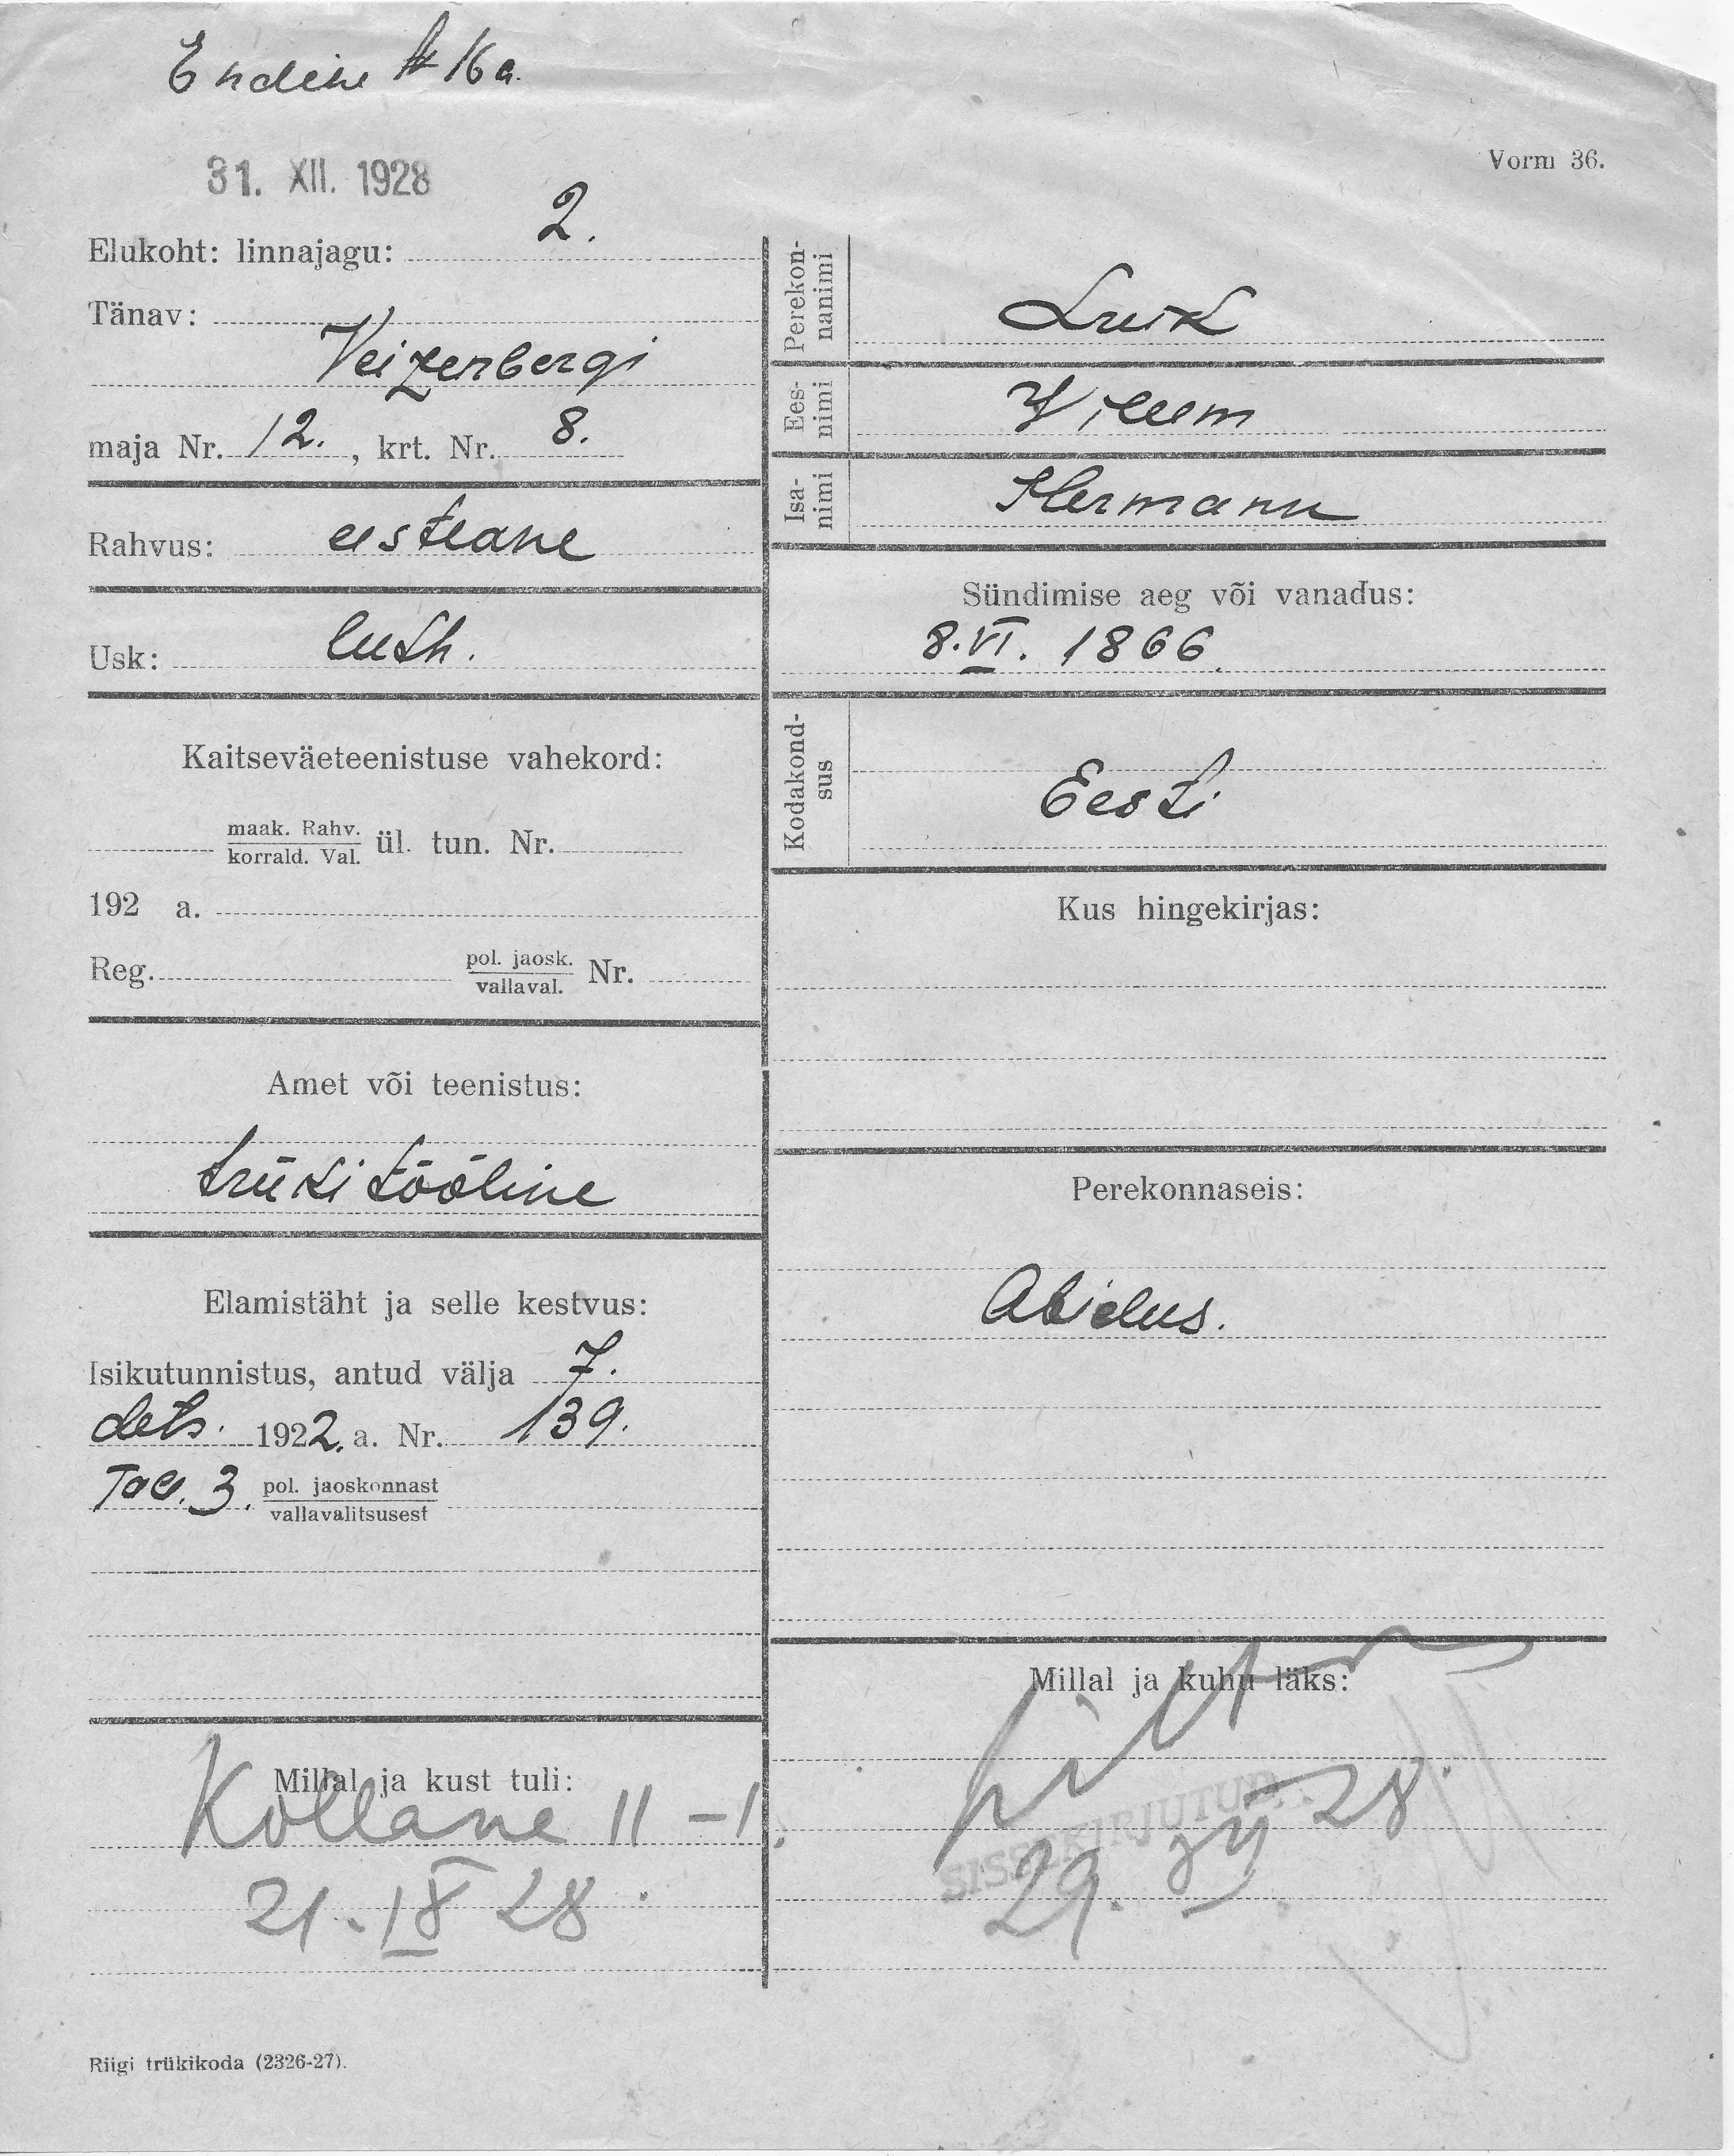 Endine № 16a.
31. XII. 1928
Vorm 36.
Elukoht: linnajagu: 2.
Tänav:
Veizenbergi
maja Nr. 12. , krt. Nr. 8.
Rahvus: eestlane
Usk: luth.
Kaitseväeteenistuse vahekord:
maak. Rahv.
korrald. Val. ül. tun. Nr.
192 a.
Reg. pol. jaosk. Nr.
vallaval.
Amet või teenistus:
trükitööline
Elamistäht ja selle kestvus:
Isikutunnistus, antud välja 7.
dets. 1922. a. Nr. 139.
Tal. 3. pol. jaoskonnast
vallavalitsusest
Millal ja kust tuli:
Kollane 11 - 1.
21. IX 28
Riigi trükikoda (2326-27).
Perekon-
nanimi
Luik
Ees-
nimi
Willem
Isa-
nimi
Hermann
Sündimise aeg või vanadus:
8. VI. 1866.
Kodakond-
sus
Eesti
Kus hingekirjas:
Perekonnaseis:
Abielus.
Millal ja kuhu läks:
SISSEKIRJUTUD
29. XII 28